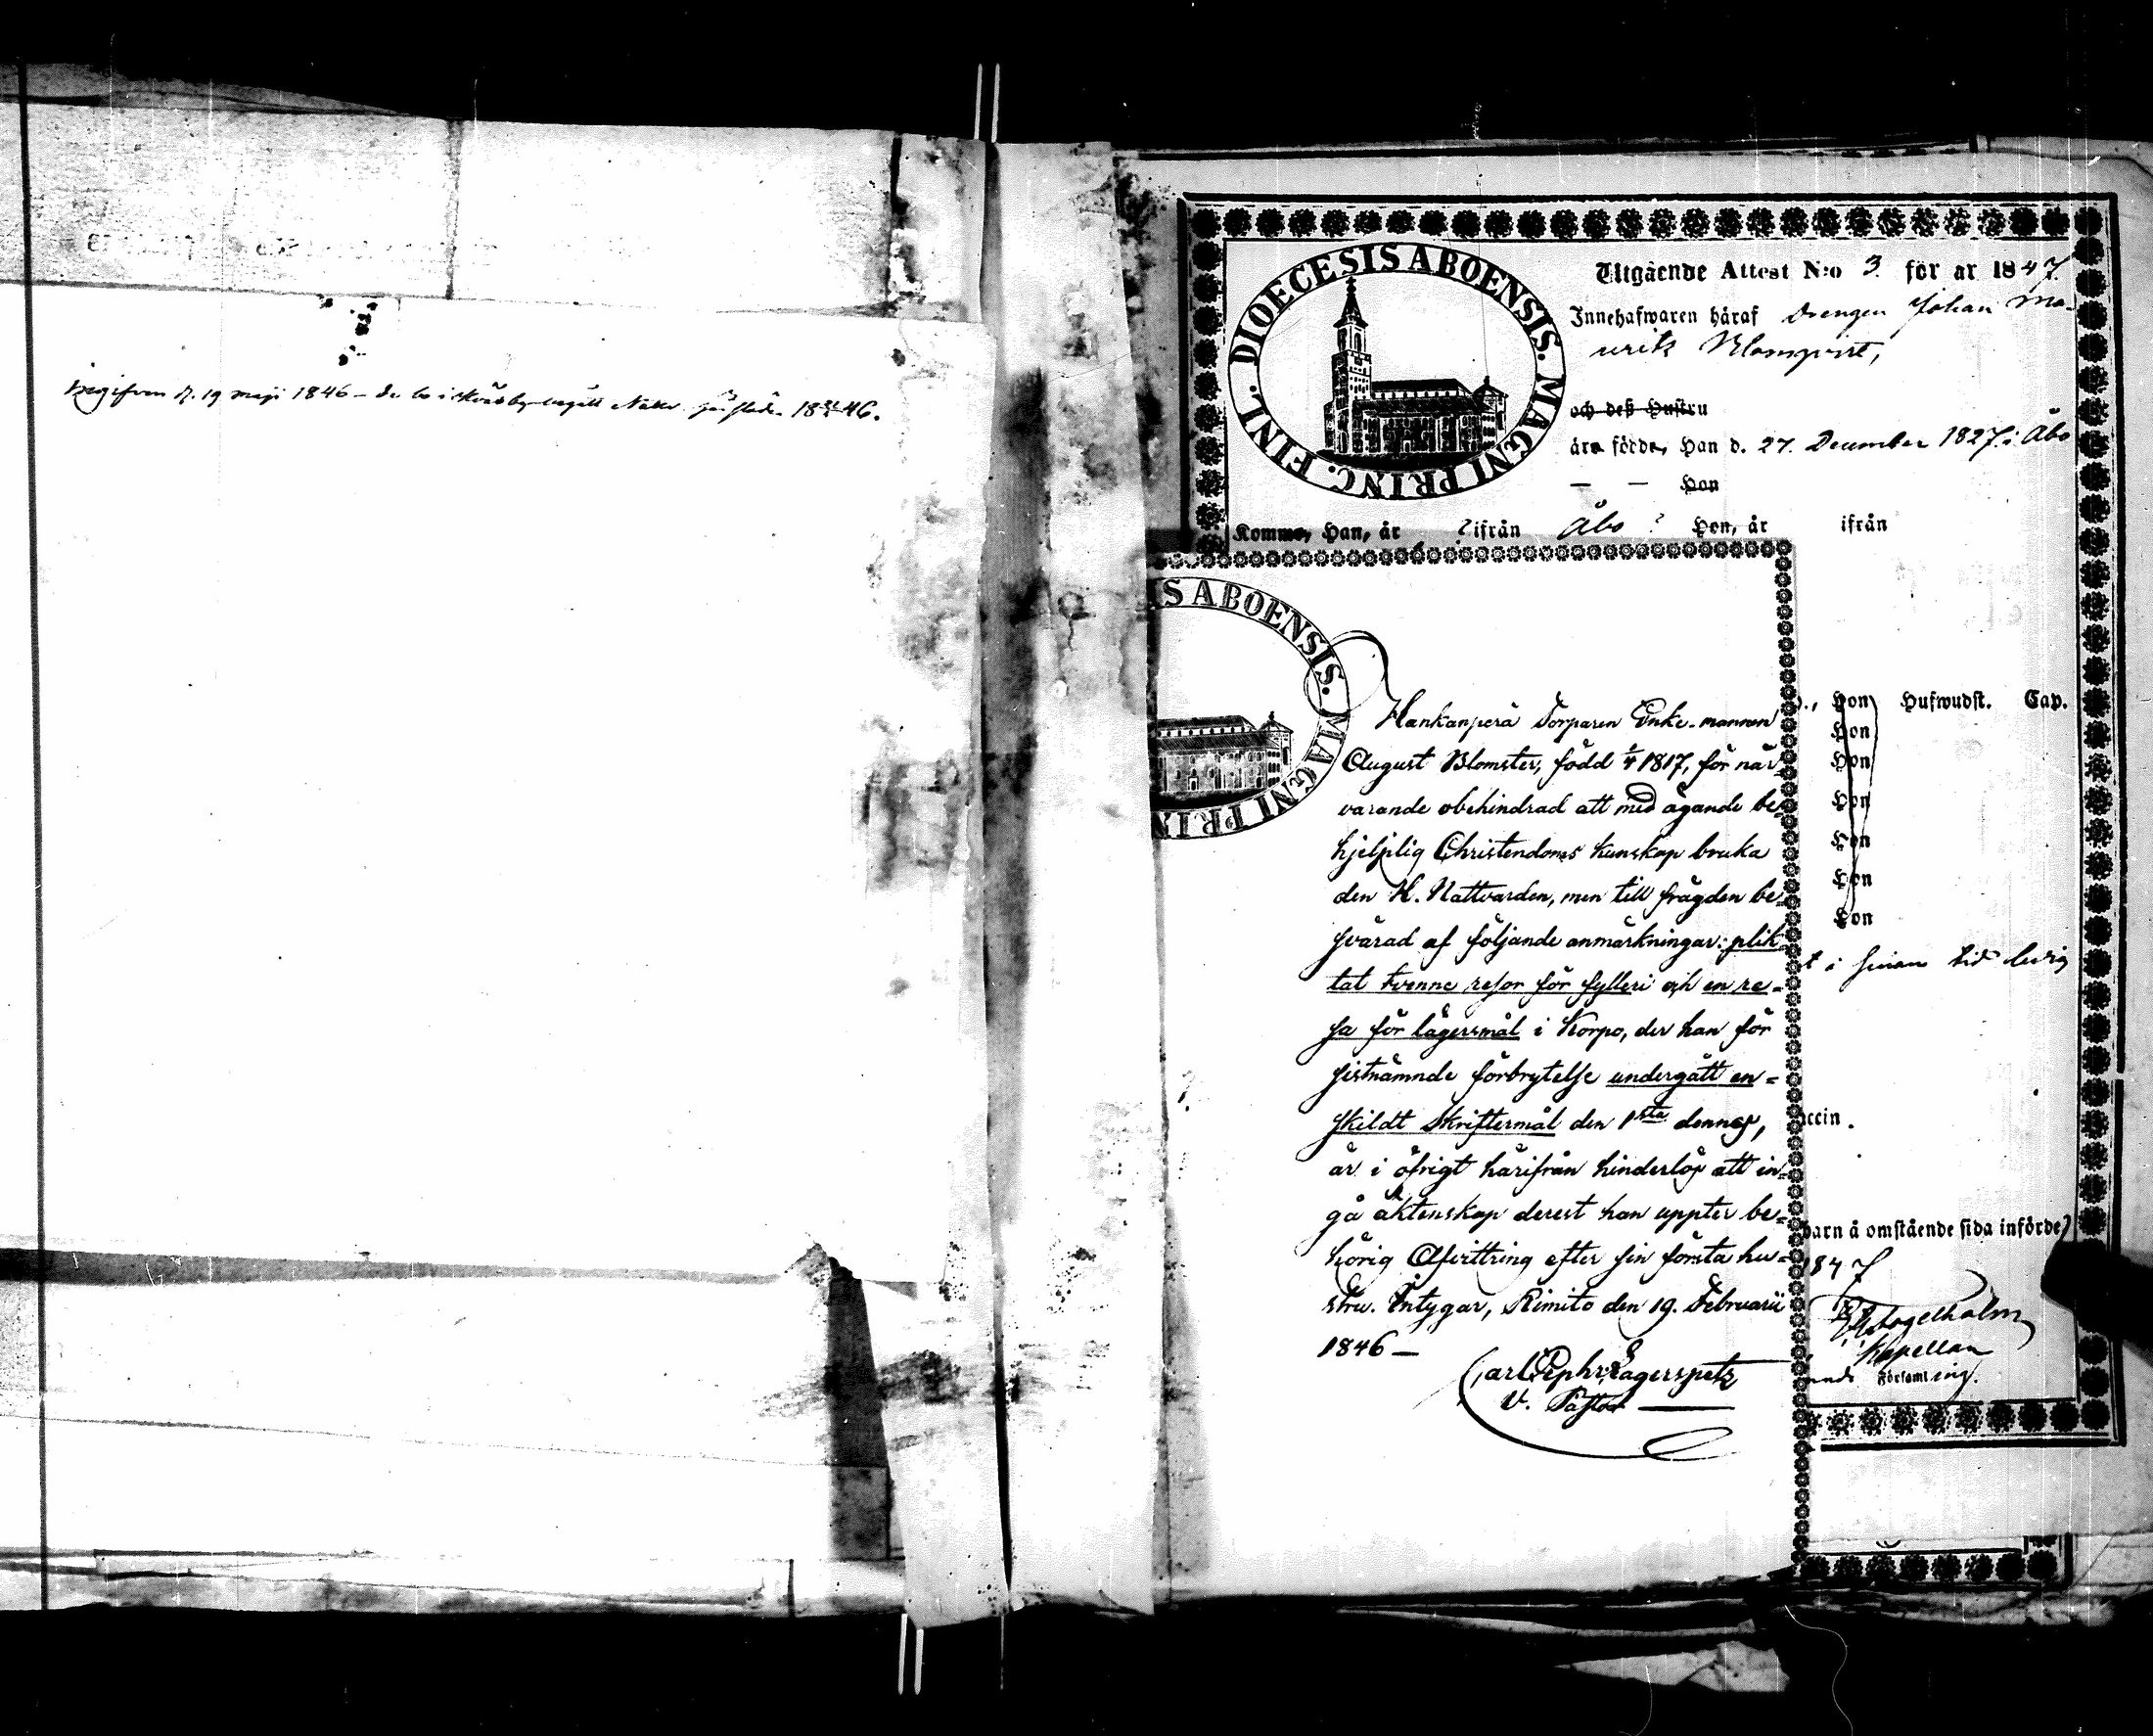 d. 19 maji 1846 – 1846.
DIOECESIS ABOENSIS. MAGNI PRINC. FINL.
Utgående Attest N:o 3. för år 1847.
Innehafwaren häraf Drengen Johan Ma-
uritz Blomqvist,
och deß Hustru
äro födde, Han d. 27. December 1827. i Åbo
— — Hon
Komme, Han, år ? ifrån Åbo ? Hon, år ifrån
IS ABOENSIS. MAGNI PRIN
Hankanperä Torparen Enke-mannen
August Blomster, född 1817, för när-
varande obehindrad att med ägande be-
hjelplig Christendoms kunskap bruka
den H. Nattvarden, men till frägden be-
svärad af följande anmärkningar: plik-
tat tvenne resor för fylleri och en re-
sa för lägersmål i Korpo, der han för
sistnämnde förbrytelse undergått en-
skildt Skriftermål den 1sta dennes,
är i öfrigt härifrån hinderlös att in-
gå äktenskap derest han uppter be-
hörig Afvittring efter sin första hu-
stru. Intygar, Kimito den 19. Februarii
1846 —
Carl Lagerspetz
V. Pastor
Hon Hufwudst. Cap.
Hon
Hon
Hon
Hon
Hon
Hon
t i sinom tid
ccin.
barn å omstående sida införde)
1847
Kapellan
Församling.